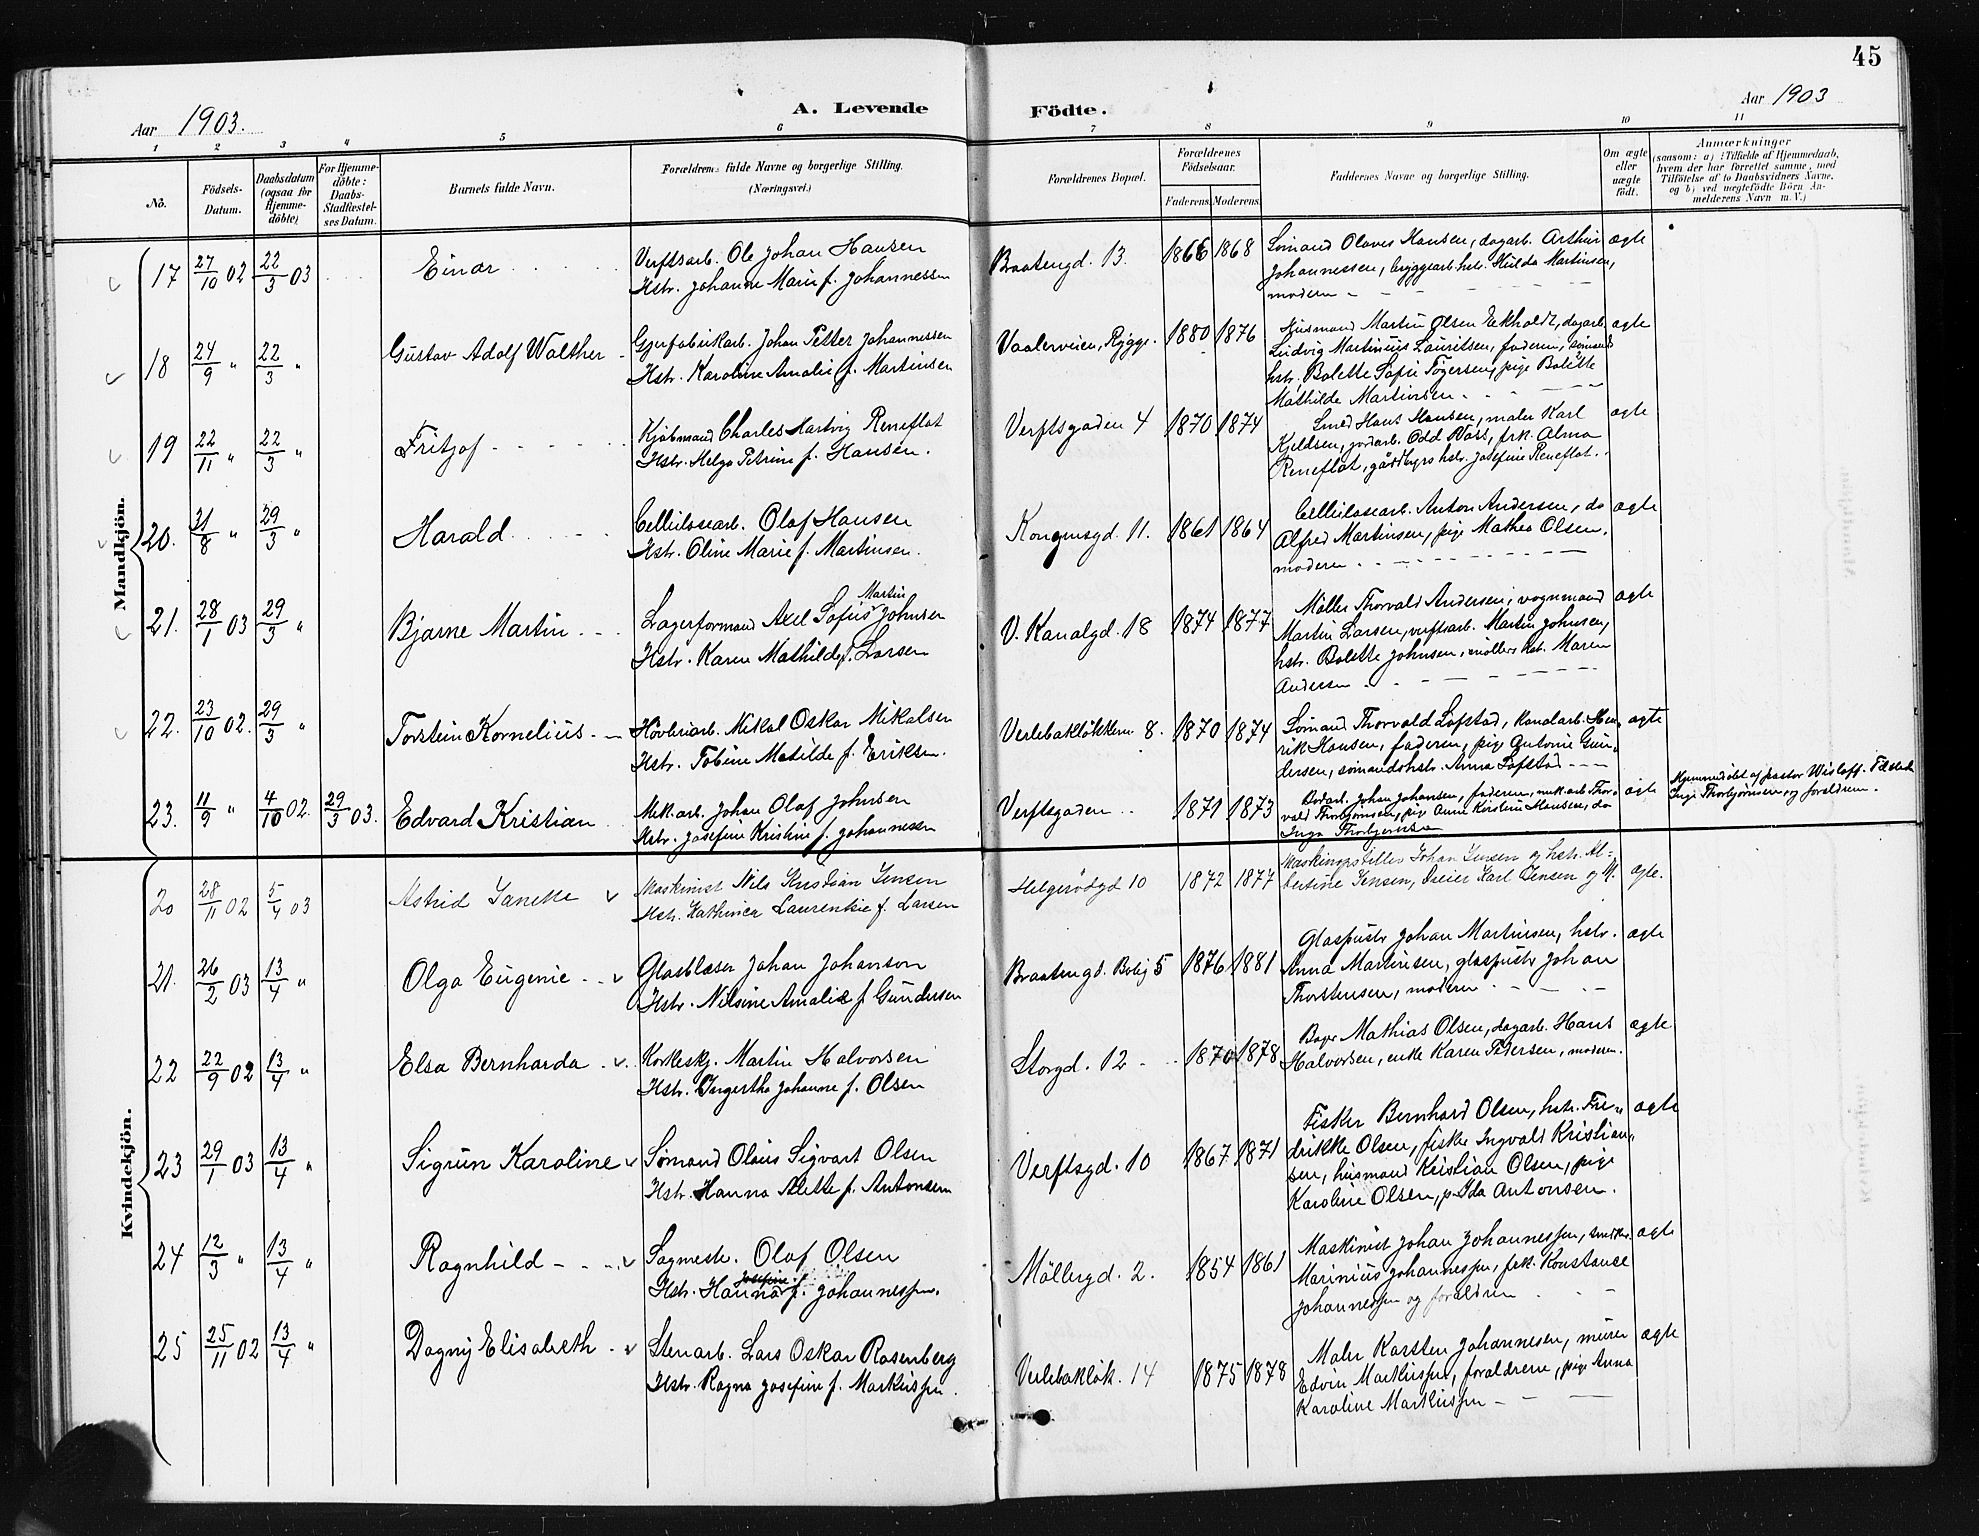 45
Aar 1903.
A. Levende Födte.
Aar 1903
1 2 3 4 5 6 7 8 9 10 11
No.
Födsels-Datum.
Daabsdatum (ogsaa for Hjemme-döbte)
For Hjemme-döbte: Daabs-Stadfæstel-ses Datum.
Barnets fulde Navn.
Forældrenes fulde Navne og borgerlige Stilling.
(Næringsvei.)
Forældrenes Bopæl.
Forældrenes Födselsaar.
Faderens Moderens
Faddernes Navne og borgerlige Stilling.
Om ægte eller uægte født.
Anmærkninger
(saasom: a) i Tilfælde af Hjemmedaab,
hvem der har forrettet samme, med
Tilföielse af to Daabsvidners Navne,
og b) ved uægtefödte Börn An-
melderens Navn m. V.)
Mandkjön.
17 27/10 02 22/3 03 Einar
Verftsarb. Ole Johan Hansen
Hstr. Johanne Marie f. Johannessen
Braatengd. 13. 1866 1868
Sømand Olaves Hansen, dagarb. Arthur
Johannessen, bryggearb.hstr. Hilda Martinsen,
moderen
ægte
18 24/9 " 22/3 " Gustav Adolf Walther
Gjærfabrikarb. Johan Petter Johannessen
Hstr. Karoline Amalie f. Martinsen
Vaalerveien, Rygge. 1880 1876
Husmand Martin Olsen Ekholdt, dagarb.
Ludvig Martinius Lauritsen, faderen, sømand
hstr. Bolette Sofie Tøgersen, pige Bolette
Mathilde Martinsen
ægte
19 22/11 " 22/3 " Fritjof
Kjøbmand Charles Hartvig Reneflot
Hstr. Helga Petrine f. Hansen.
Verftsgaden 4 1870 1874
Smed Hans Hansen, maler Karl
Kjeldsen, jordarb. Odd Wass, frk. Alma
Reneflot, gårdbrgs hstr. Josefine Reneflot.
ægte
20. 31/8 " 29/3 " Harald
Cellulosearb. Olaf Hansen
Hstr. Oline Marie f. Martinsen.
Kongensgd. 11. 1861 1864
Cellulosearb. Anton Andersen, do
Alfred Martinsen, pige Mathea Olsen,
moderen
ægte
21. 28/1 03 29/3 " Bjarne Martin
Martin
Lagerformand Axel Sofus Johnsen
Hstr. Karen Mathilde f. Larsen
V. Kanalgd. 18 1874 1877
Møller Thorvald Andersen, vognmand
Martin Larsen, verftsarb. Martin Johnsen,
hstr. Bolette Johnsen, møllers hst. Maren
Andersen
ægte
22. 23/10 02. 29/3 " Torstein Kornelius
Høvleriarb. Mikal Oskar Mikalsen
Hstr. Tobine Matilde f. Eriksen.
Verlebakløkken 8. 1870 1874
Sømand Thorvald Lofstad, kanalarb. Hen-
rik Hansen, faderen, pige Antonie Gun-
dersen, sømandshstr. Anna Lofstad
ægte
23. 11/9 " 4/10 02. 29/3 03. Edvard Kristian
Mek.arb. Johan Olaf Johnsen
Hstr. Josefine Kristine f. Johannessen
Verftsgaden 1871 1873
Bødarb. Johan Johansen, faderen, mek.arb. Thor-
vald Thorbjørnsen, pige Anne Kirstine Hansen, do
Inga Thorbjørnsen
ægte
Hjemmedøbt af pastor Wisløff.
Inga Thorbjørnsen og forældrene.
Kvindekjön.
20 28/11 02 5/4 03 Astrid Janette
Maskinist Nils Kristian Jensen
Hstr. Kathinca Laurentzie f. Larsen
Helgerødgd 10 1872 1877
Maskinopstiller Johan Jensen og hstr. Al-
bertine Jensen, Dreier Karl Jensen og M.
ægte.
21. 26/2 03 13/4 " Olga Eugenie
Glasblæser Johan Johanson
Hstr. Nilsine Amalie f. Gundersen
Braatengd. Bolig 5 1876 1881
Glaspuster Johan Martinsen, hstr.
Anna Martinsen, glaspuster Johan
Thorstensen, moderen
ægte
22 22/9 02 13/4 " Elsa Bernharda
Korkeskj. Martin Halvorsen
Hstr. Ingertha Johanne f. Olsen
Storgd. 12 1870 1878
Bager Mathias Olsen, dagarb. Hans
Halvorsen, enke Karen Pedersen, moderen.
ægte
23 29/1 03 13/4 " Sigrun Karoline
Sømand Olaus Sigvart Olsen
Hstr. Hanna Alette f. Antonsen
Verftsgd. 10 1867 1871
Fisker Bernhard Olsen, hstr. Fre-
drikke Olsen, fisker Ingvald Kristian-
sen, husmand Kristian Olsen, pige
Karoline Olsen, p. Ida Antonsen.
ægte
24 12/3 " 13/4 " Ragnhild
Sagmester. Olaf Olsen
Josefine
Hstr. Hanna f. Johannessen.
Møllergd. 2. 1854 1861
Maskinist Johan Johannessen, snedker
Marinius Johannessen, frk. Konstance
Johannessen og forældren
ægte
25 25/11 02 13/4 " Dagny Elisabeth
Stenarb. Lars Oskar Rosenberg
Hstr. Ragna Josefine f. Markussen.
Verlebakløk. 14 1875 1878
Maler Karsten Johannesen, murer
Edvin Markussen, forældrene, pige Anna
Karoline Markussen
ægte